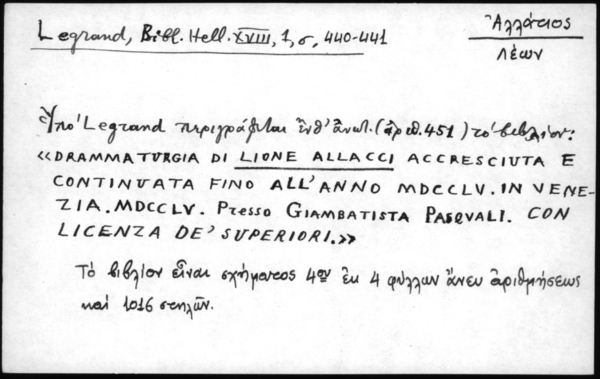 Legrand, Bibl. Hell. XVIII, 1, σ, 440-441
Ἀλλάτιος
Λέων
Ὑπὸ Legrand περιγράφεται ἔνθ' ἀνωτ. (ἀριθ. 451) τὸ βιβλίον:
«DRAMMATURGIA DI LIONE ALLACCI ACCRESCIUTA E
CONTINUATA FINO ALL'ANNO MDCCLV. IN VENE-
ZIA. MDCCLV. Presso GIAMBATISTA PASQUALI. CON
LICENZA DE' SUPERIORI.»
Τὸ βιβλίον εἶναι σχήματος 4ον ἐκ 4 φύλλων ἄνευ ἀριθμήσεως
καὶ 1016 στηλῶν.